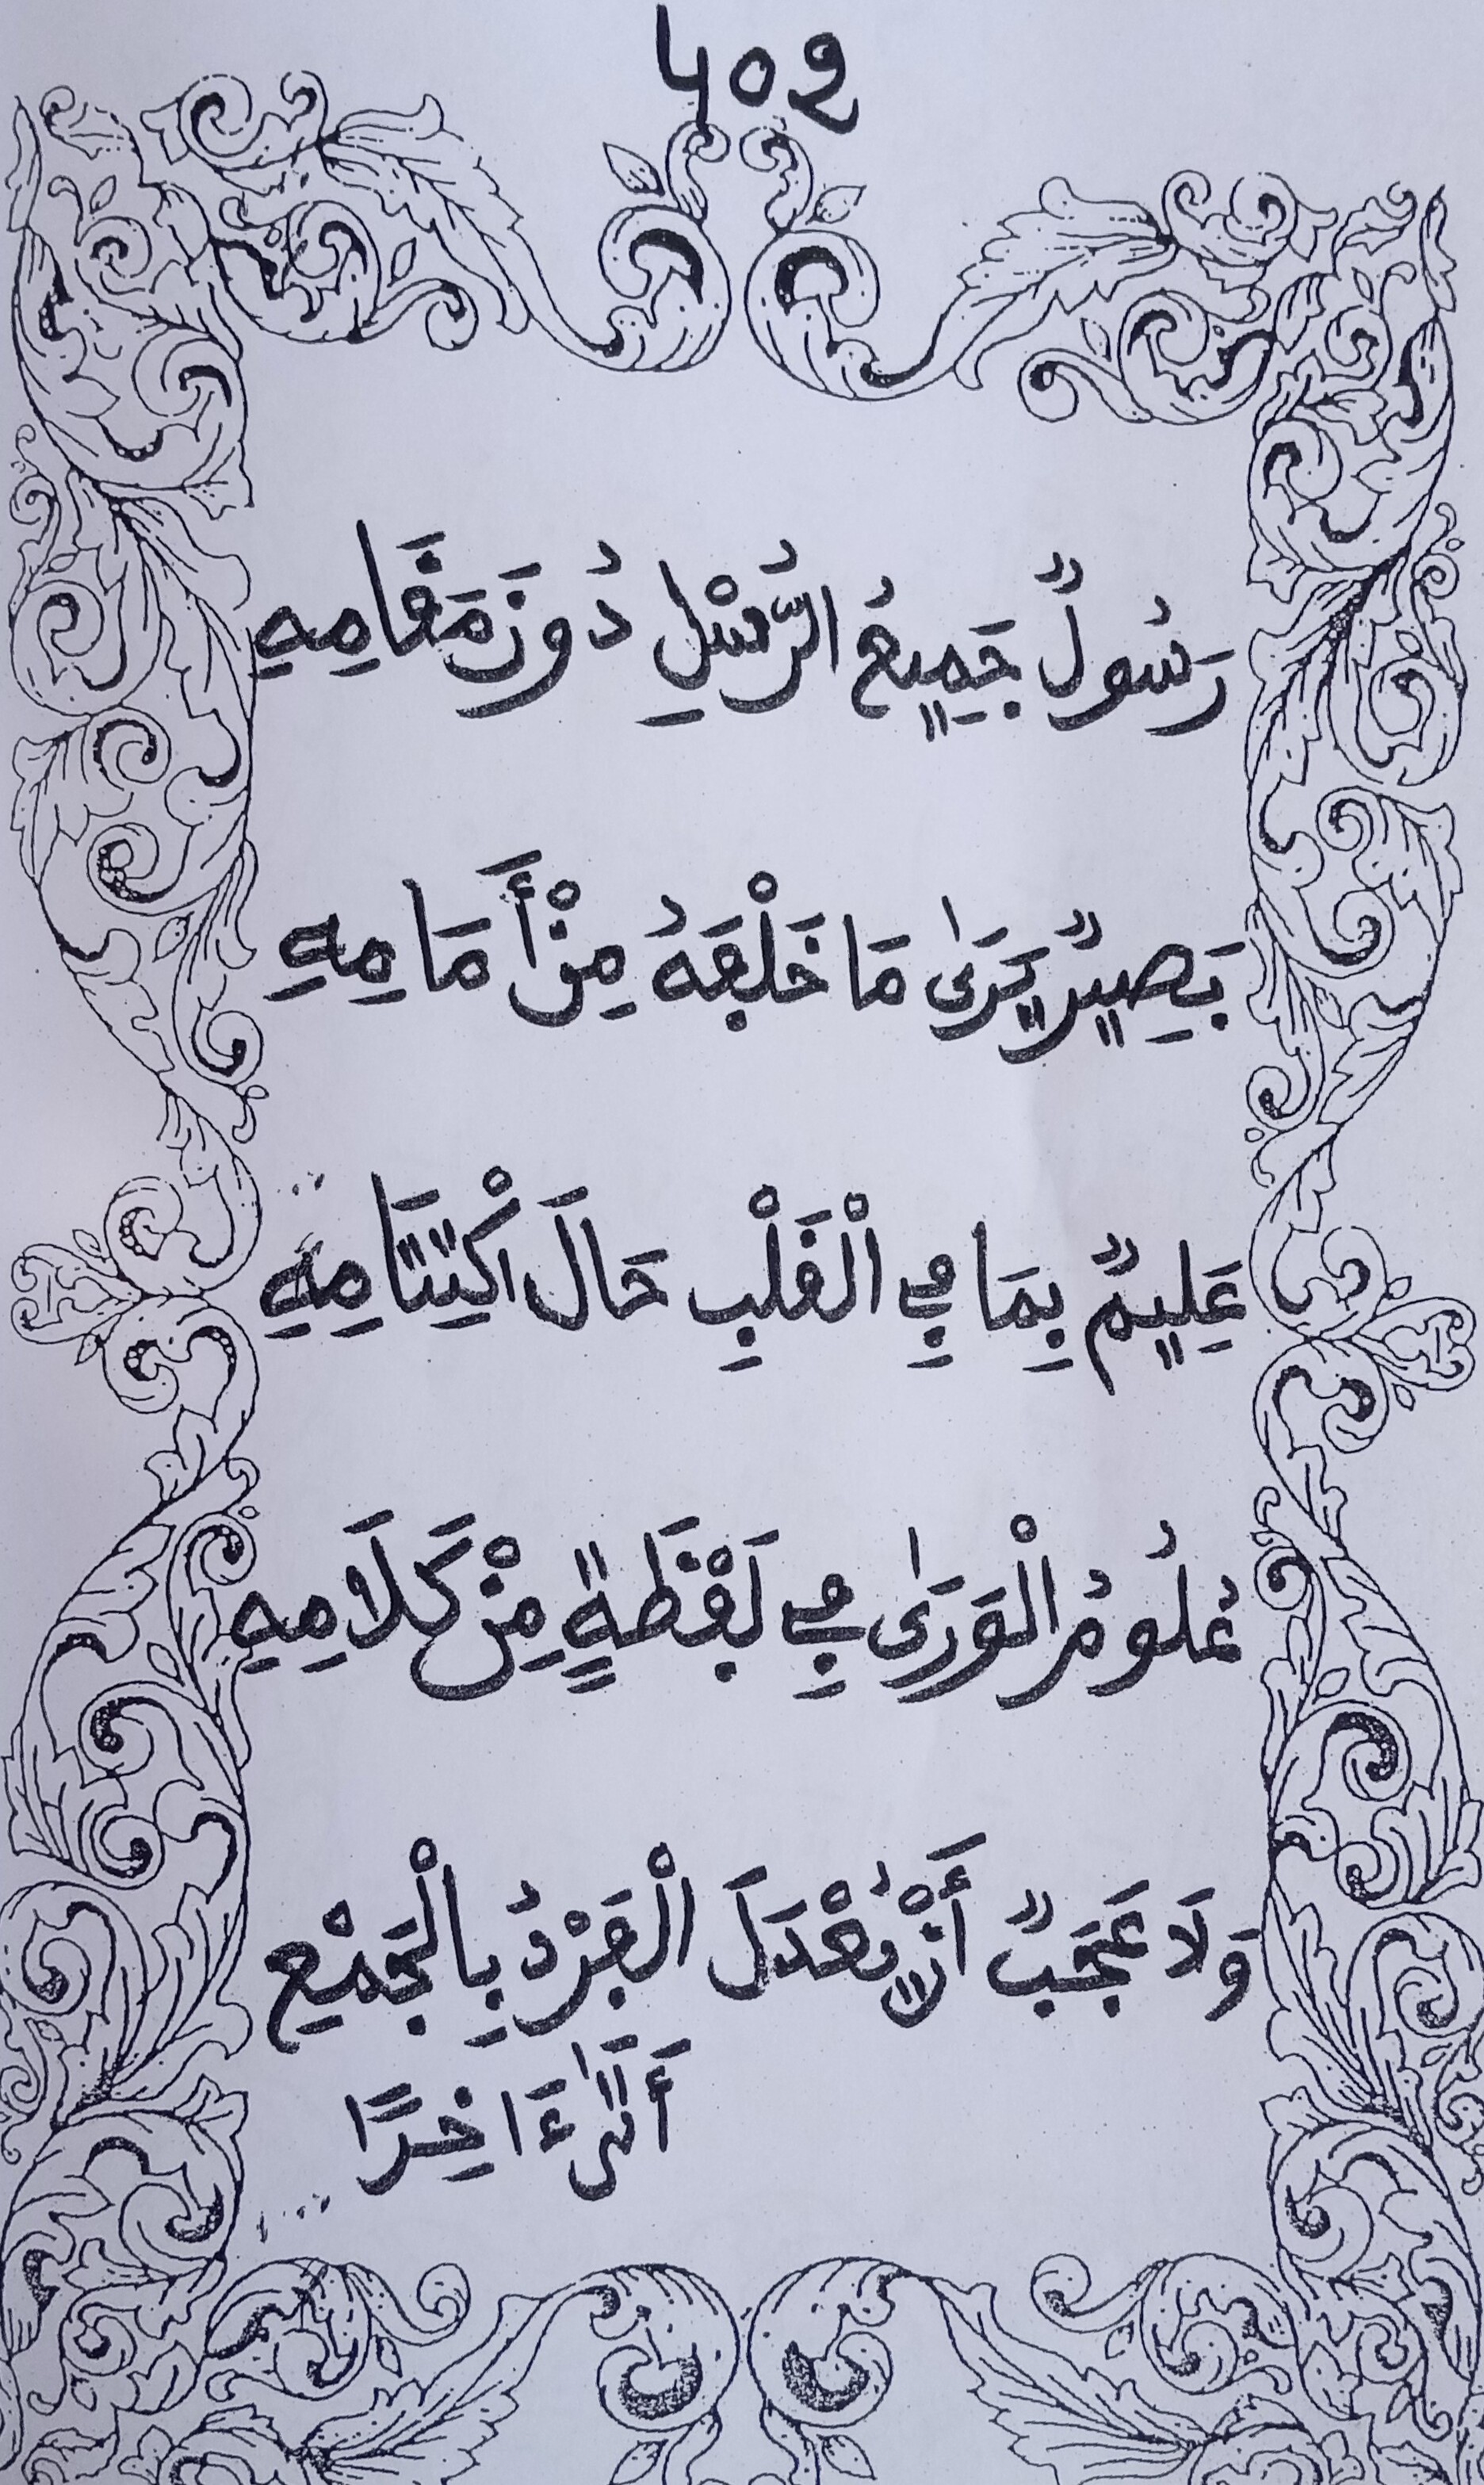 402
رَسُولٌ جَمِيعُ الرُّسْلِ دُونَ مَقَامِهِ
بَصِيرٌ يَرَىٰ مَا خَلْفَهُ مِنْ أَمَامِهِ
عَلِيمٌ بِمَا فِي الْقَلْبِ حَالَ اكْتِتَامِهِ
عُلُومُ الْوَرَىٰ فِي لَفْظَةٍ مِنْ كَلَامِهِ
وَلَا عَجَبٌ أَنْ يُعْدَلَ الْفَرْدُ بِالْجَمْعِ
أَتَىٰ ءَاخِرًا